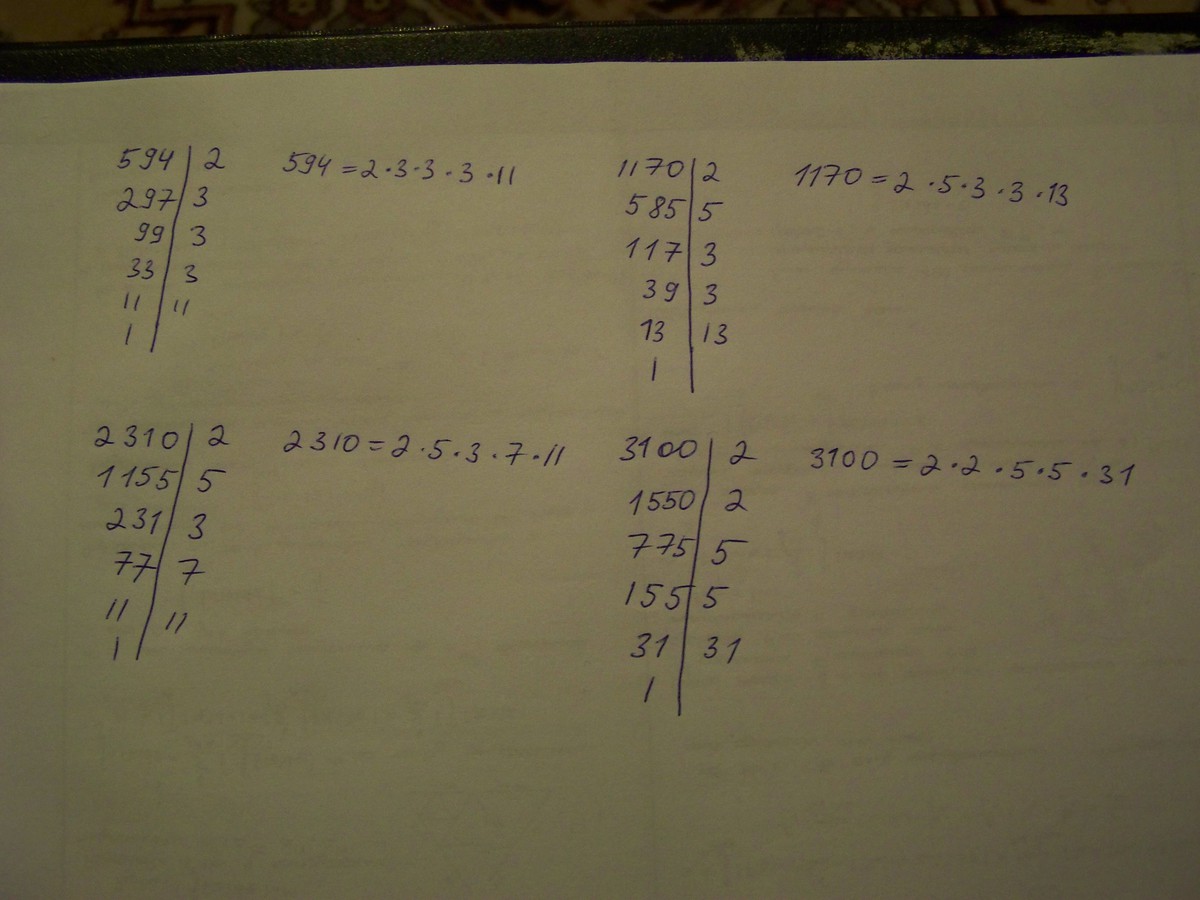 594 | 2
297 | 3
99 | 3
33 | 3
11 | 11
1 |
594 = 2 · 3 · 3 · 3 · 11
1170 | 2
585 | 5
117 | 3
39 | 3
13 | 13
1 |
1170 = 2 · 5 · 3 · 3 · 13
2310 | 2
1155 | 5
231 | 3
77 | 7
11 | 11
1 |
2310 = 2 · 5 · 3 · 7 · 11
3100 | 2
1550 | 2
775 | 5
155 | 5
31 | 31
1 |
3100 = 2 · 2 · 5 · 5 · 31